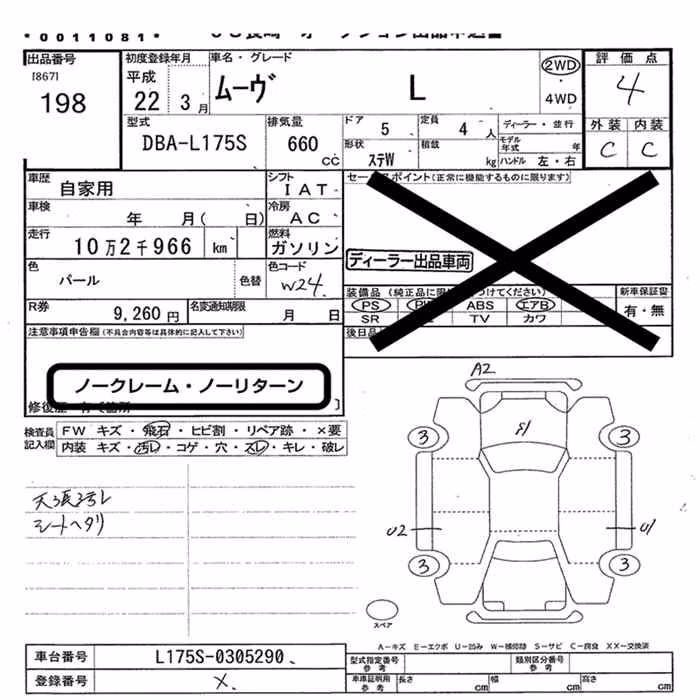 *0011081*
出品番号 [867] 198
初度登録年月 平成 22 3月
車名・グレード ムーヴ L
2WD 4WD
評価点 4
外装 内装
C C
型式 DBA-L175S
排気量 660 CC
ドア 5 定員 4 人
ディーラー・並行
形状 ステW 積載 kg
モデル年式 年
ハンドル 左・右
車歴 自家用
シフト IAT
セールスポイント(正常に機能するものに限ります)
車検 年 月( 日)
冷房 AC
走行 10万2千966 km
燃料 ガソリン
ディーラー出品車両
色 パール 色替
色コード W24
装備品(純正品に限り つけてください)
新車保証書 有・無
PS PW ABS エアB
SR TV カワ
R券 9,260円
名変通知期限 月 日
後日品
注意事項申告欄(不具合内容等は具体的に記入して下さい)
ノークレーム・ノーリターン
修復歴
検査員記入欄
FW キズ・飛石・ヒビ割・リペア跡・×要
内装 キズ・汚レ・コゲ・穴・スレ・キレ・破レ
天張汚レ
シートヘタリ
A2
3 3
U2 U1
3 3
スペア
A-キズ E-エクボ U-凹み W-補修跡 S-サビ C-腐食 XX-交換済
車台番号 L175S-0305290
型式指定番号 参考
類別区分番号 参考
登録番号 ×
車庫証明用 参考
長さ cm 幅 cm 高さ cm